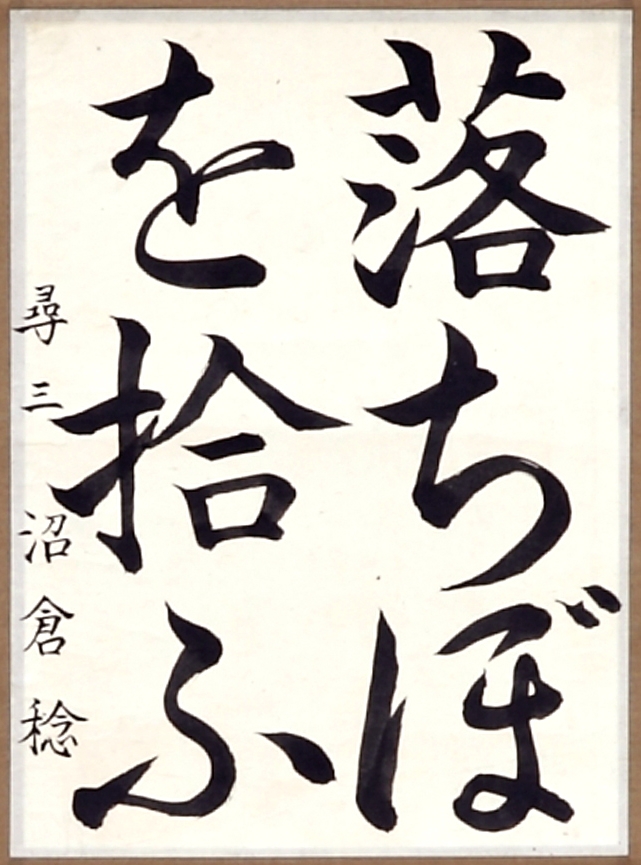 落ちぼ
を拾ふ
尋三 沼倉稔